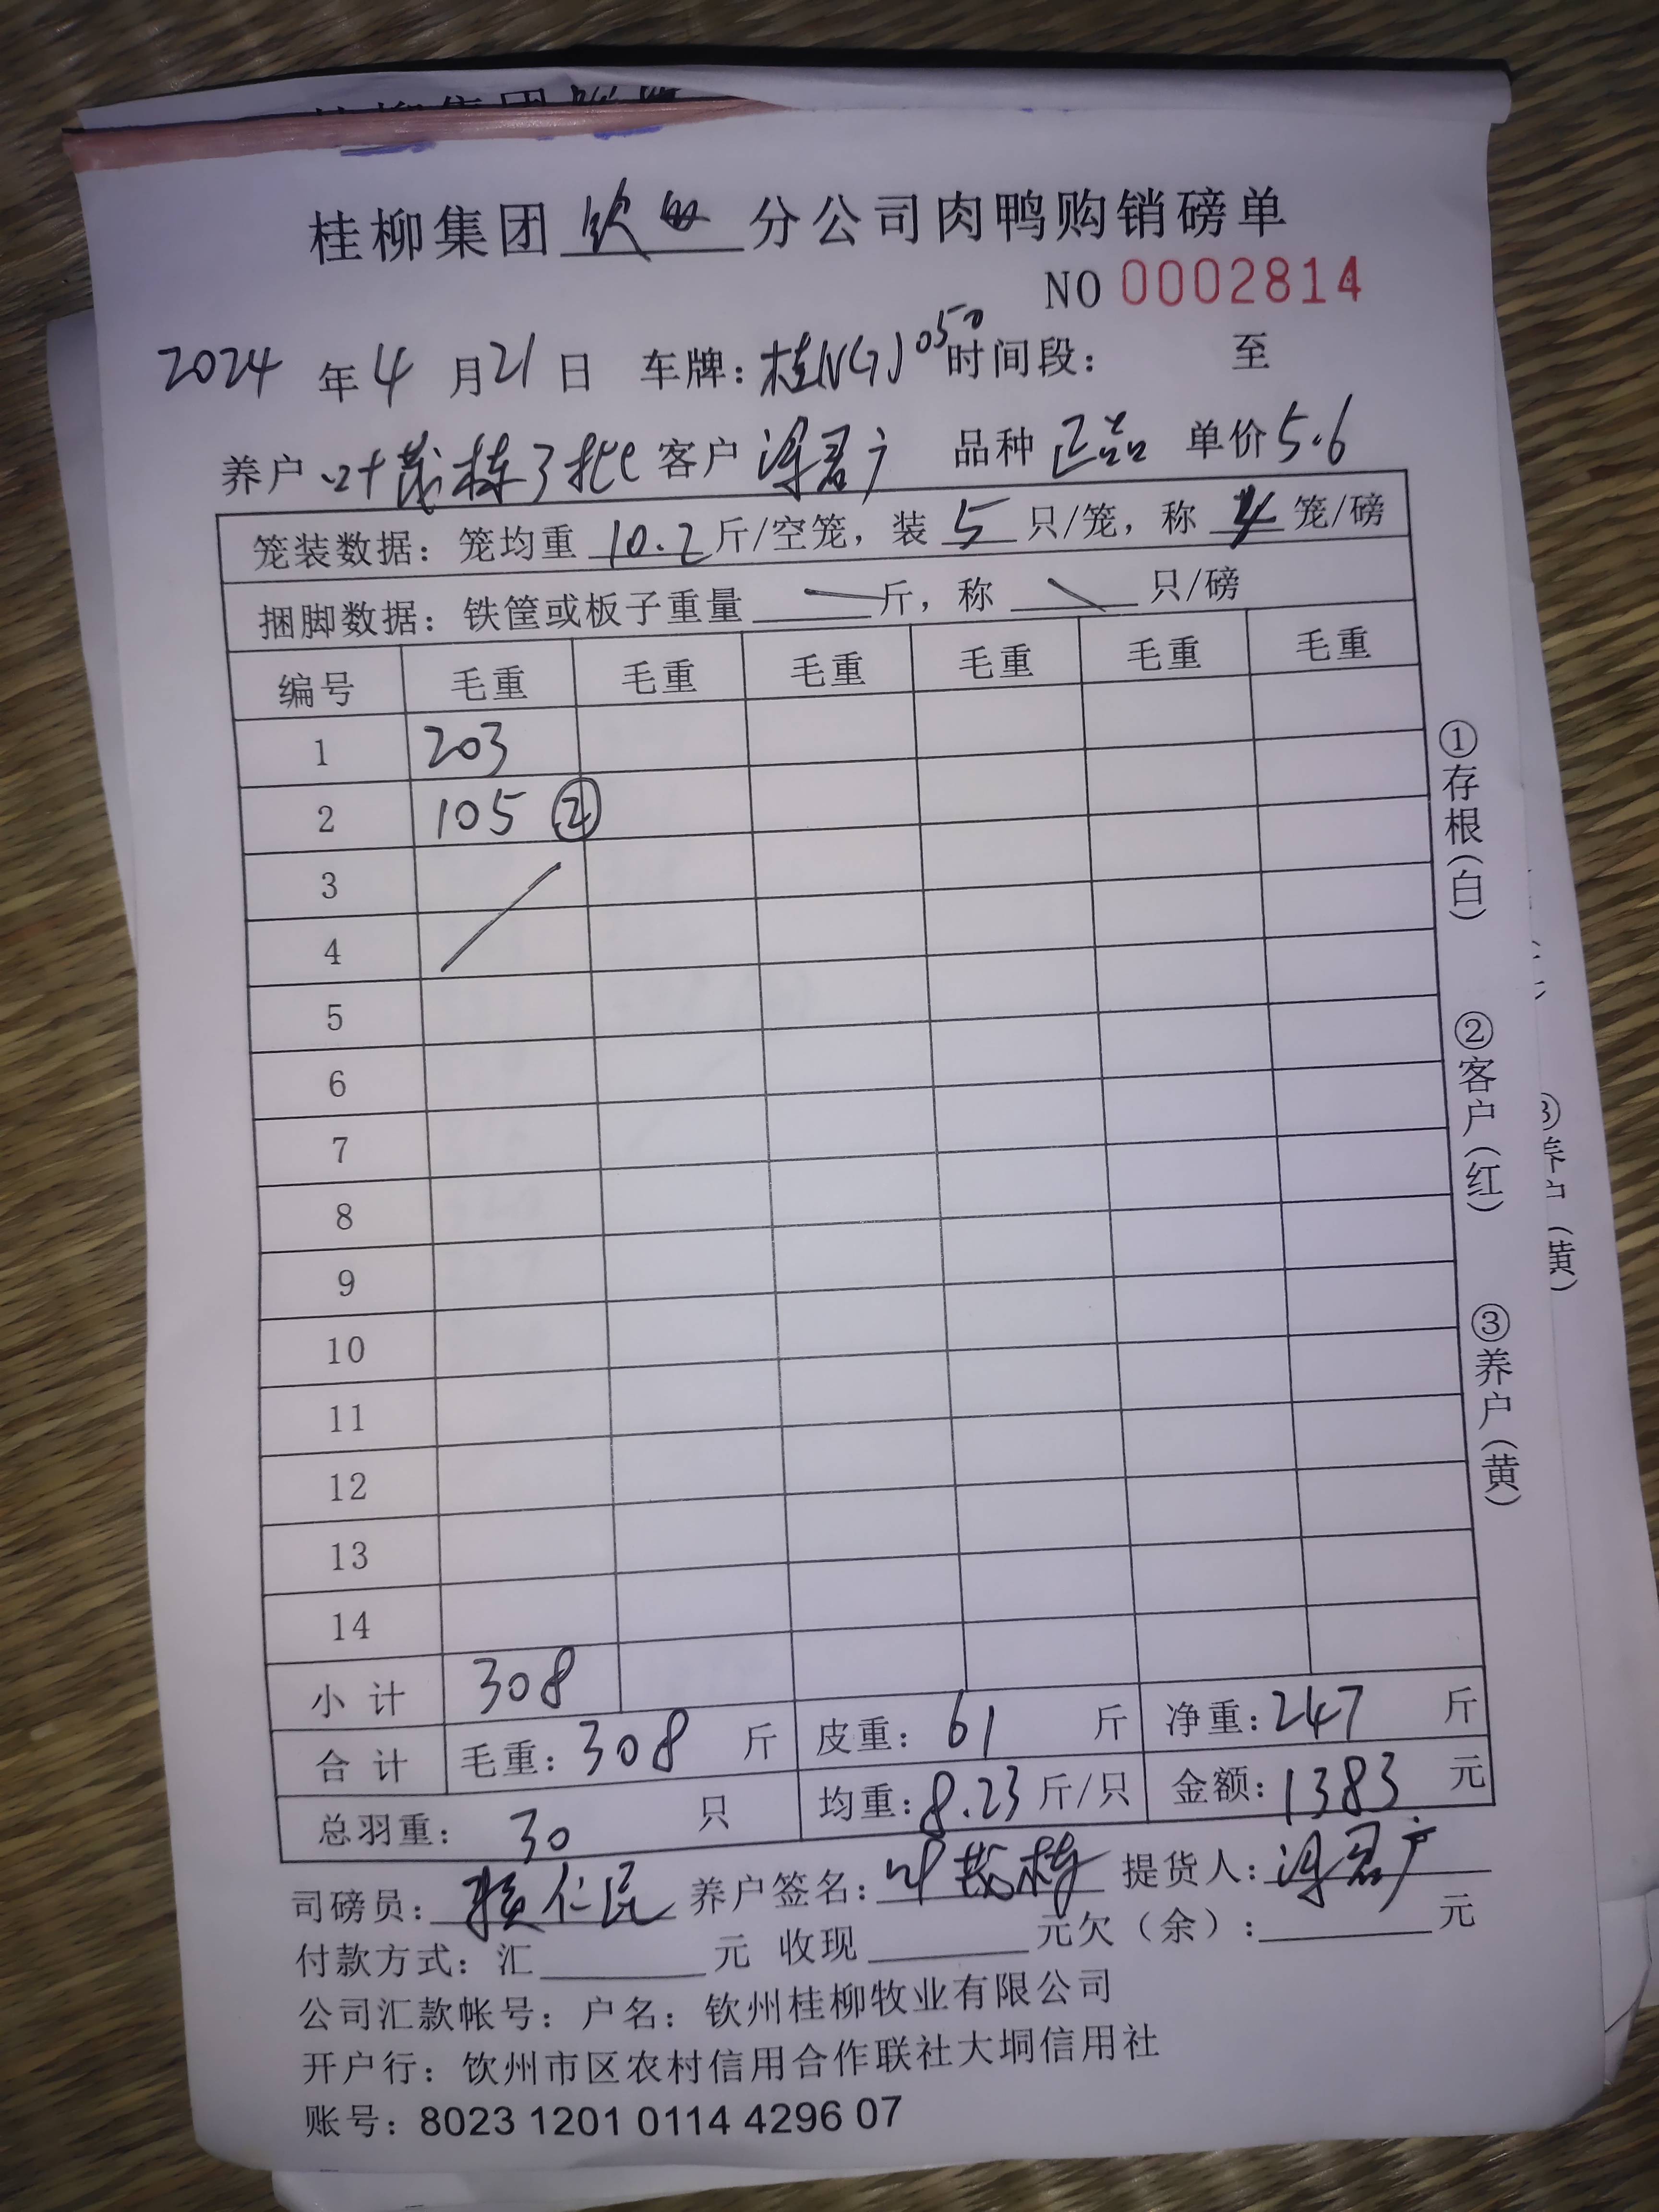 桂柳集团 钦州 分公司肉鸭购销磅单
NO 0002814
2024 年 4 月 21 日 车牌：桂N 050 时间段： 至
养户 叶茂栋 3批 客户 品种 正品 单价 5.6
笼装数据：笼均重 10.2 斤/空笼，装 5 只/笼，称 4 笼/磅
捆脚数据：铁筐或板子重量 斤，称 只/磅
编号 毛重 毛重 毛重 毛重 毛重 毛重
1 203
2 105 ②
3
4
5
6
7
8
9
10
11
12
13
14
小计 308
合计 毛重：308 斤 皮重：61 斤 净重：247 斤
总羽重：30 只 均重：8.23 斤/只 金额：1383 元
司磅员：赖仁民 养户签名：叶茂栋 提货人：
付款方式：汇 元 收现 元欠（余）： 元
公司汇款帐号：户名：钦州桂柳牧业有限公司
开户行：钦州市区农村信用合作联社大垌信用社
账号：8023 1201 0114 4296 07
①存根（白） ②客户（红） ③养户（黄）
③养户（黄）